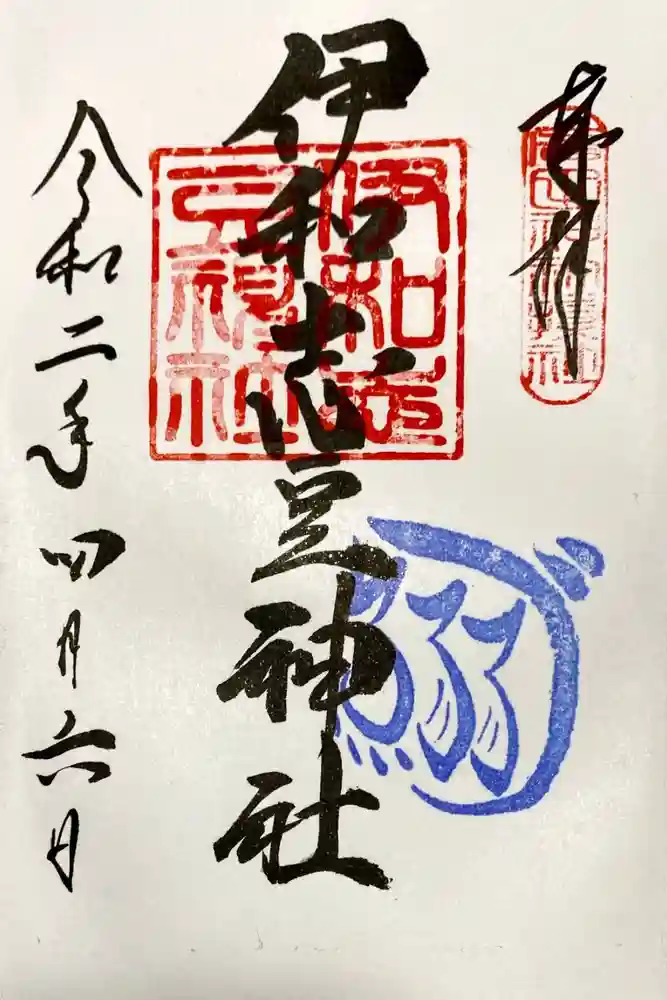 奉拝
伊和志豆神社
伊和志豆神社
令和二年四月六日